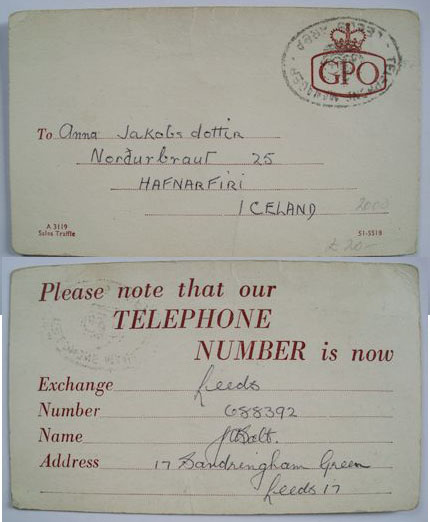 GPO
TELEPHONE MANAGER · LEEDS AREA
To Anna Jakobsdottir
Norðurbraut 25
HAFNARFIRI
ICELAND
2000
£ 20-
A 3119
Sales Traffic
51-5518
Please note that our
TELEPHONE
NUMBER is now
Exchange Leeds
Number 688392
Name
Address 17 Sandringham Green
Leeds 17